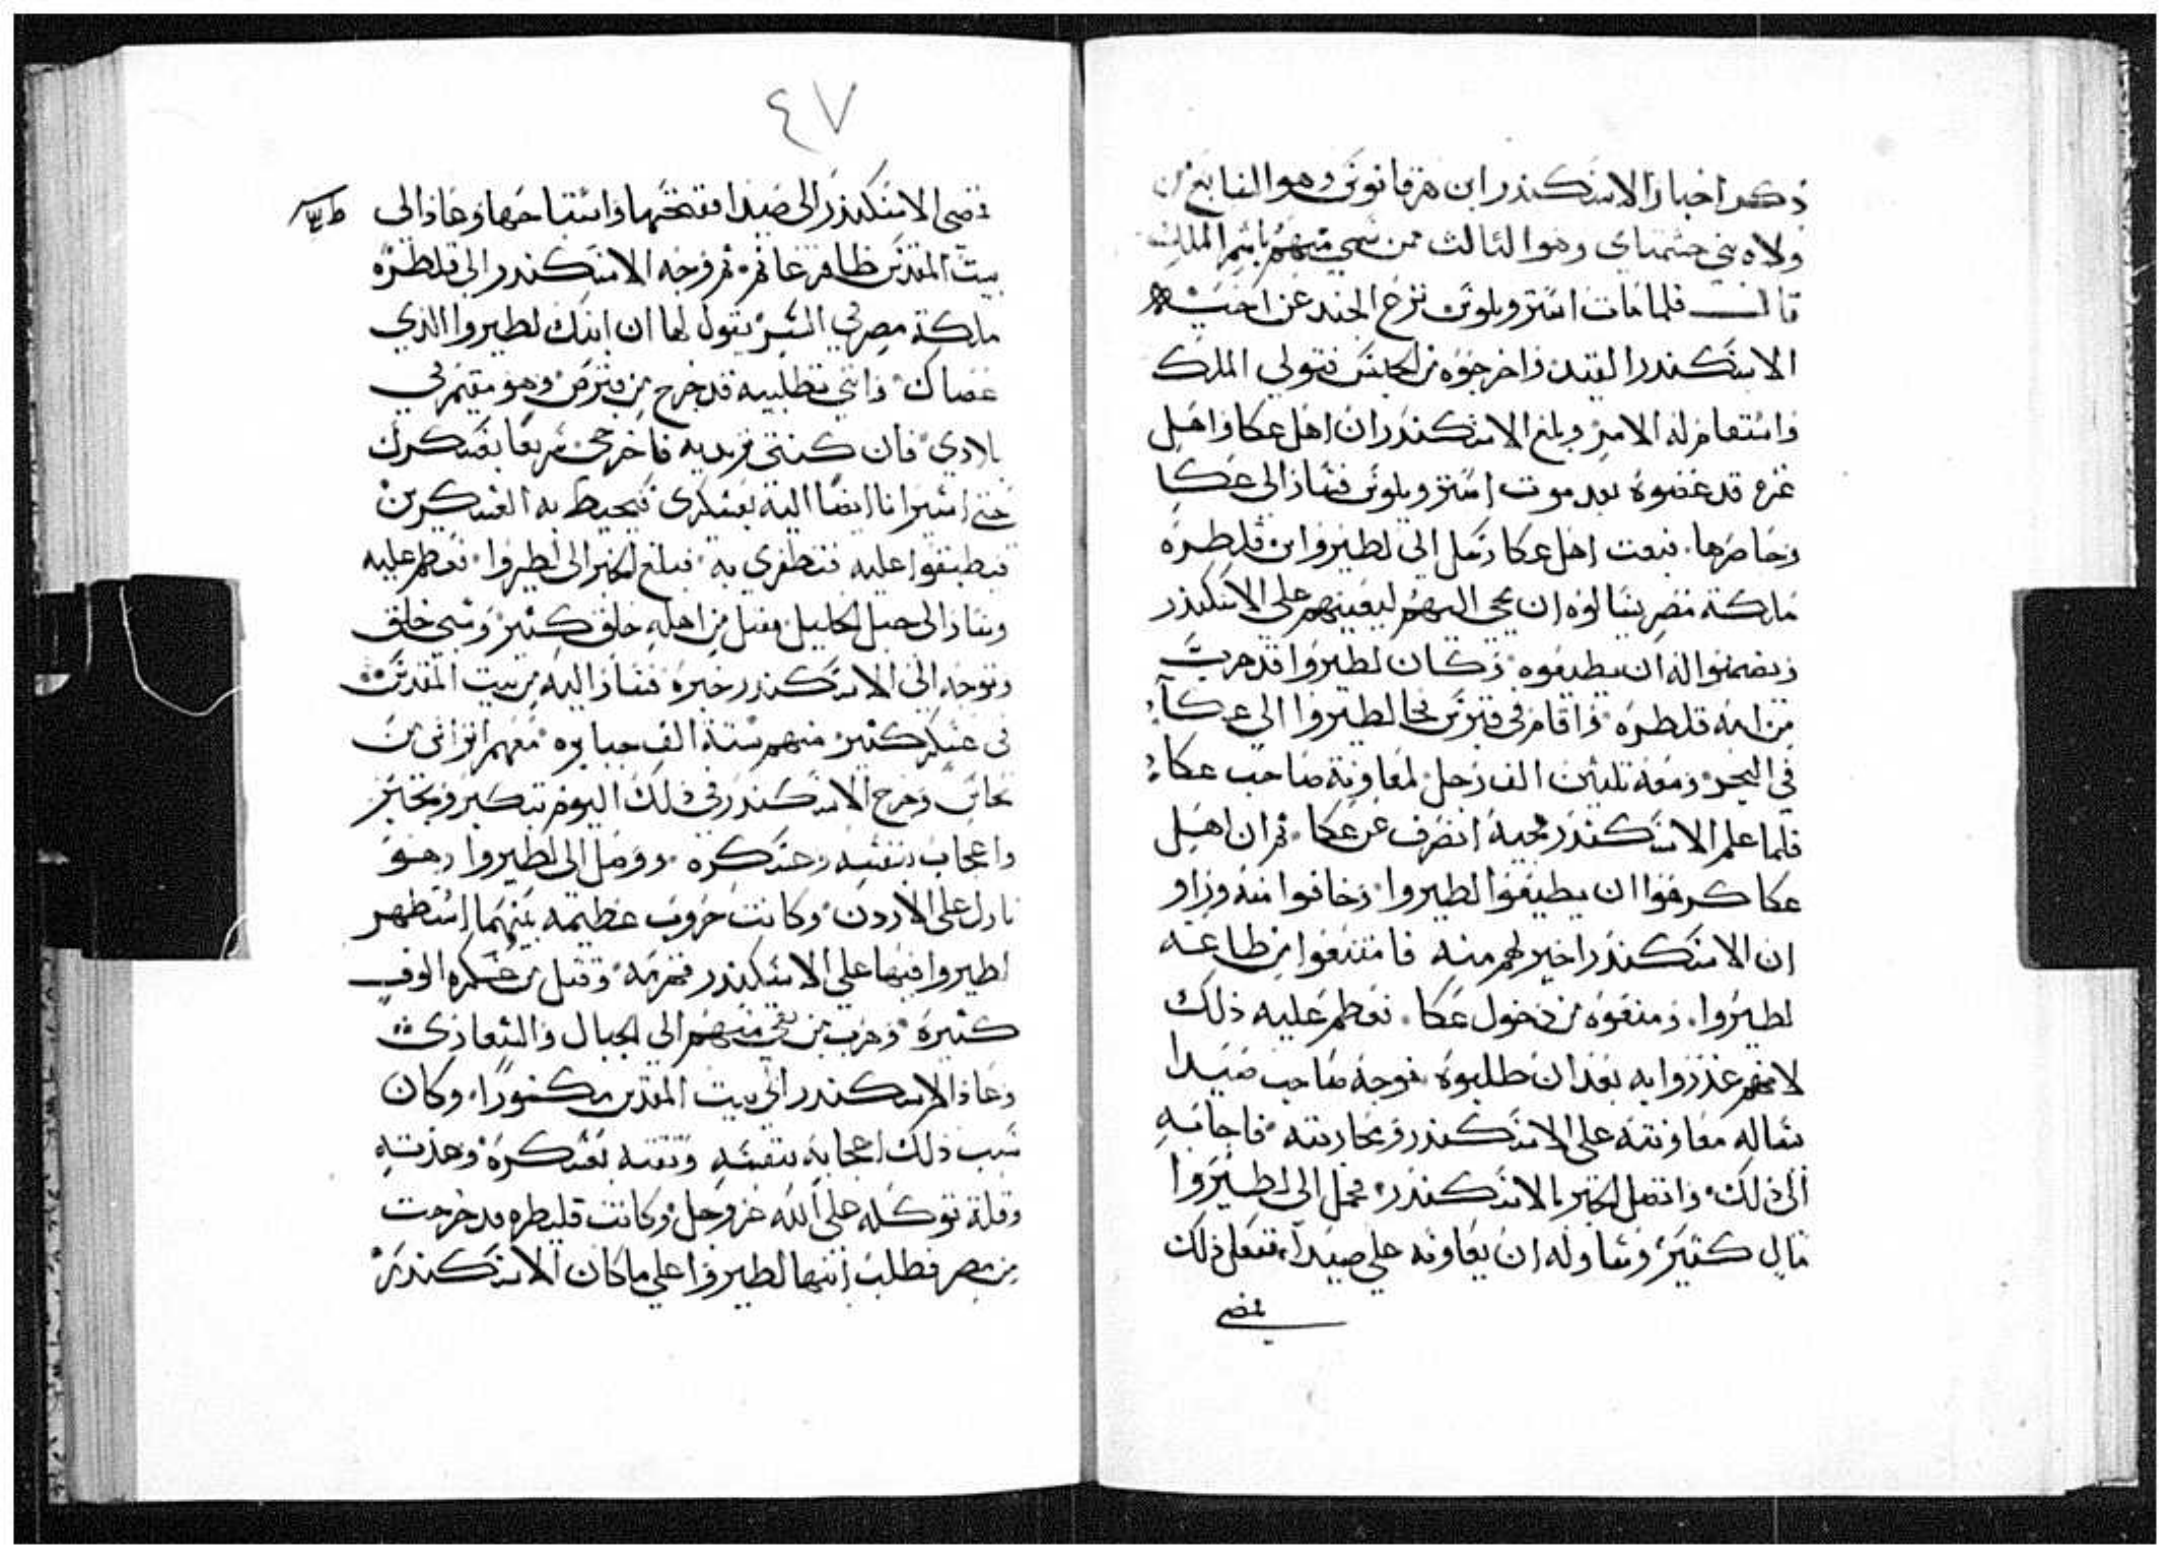 ذكر اخبار الاسكندر ابن هرقانوس وهو السابع من
ولاه بني حشمناي وهو الثالث ممن سمي منهم باسم الملك
قال فلما مات استروبلوس نزع الجند عن اخيه
الاسكندر القيد واخرجوه من الحبس فتولي الملك
واستقام له الامر وبلغ الاسكندر ان اهل عكا واهل
غزه قد عصوه بعد موت استروبلوس فسار الى عكا
وحاصرها فبعث اهل عكا رجل الى لطيروا ابن قلطره
ملكة مصر يسالوه ان يجي اليهم ليعينهم على الاسكندر
ويضمنوا له ان يطيعوه وكان لطيروا قد هرب
من امه قلطره واقام في قبرس فجا لطيروا الى عكا
في البحر ومعه ثلثين الف رجل لمعاونة صاحب عكا
فلما علم الاسكندر بمجيه انصرف عن عكا ثم ان اهل
عكا كرهوا ان يطيعوا لطيروا وخافوا منه وراو
ان الاسكندر اخير لهم منه فامتنعوا من طاعته
لطيروا ومنعوه من دخول عكا فعظم عليه ذلك
لانهم غدروا به بعد ان طلبوه فوجه صاحب صيدا
يساله معاونته على الاسكندر ومحاربته فاجابه
الى ذلك واتصل الخبر بالاسكندر فحمل الى لطيروا
مال كثير وساوله ان يعاونه على صيدا ففعل ذلك
فمضى
٤٧
فمضى الاسكندر الى صيدا ففتحها واستباحها وعاد الى
بيت المقدس ظافر غانم ثم وجه الاسكندر الى قلطره
ملكة مصر في السر يقول لها ان ابنك لطيروا الذي
عصاك وانتي تطلبيه قد خرج من قبرص وهو مقيم في
بلادي فان كنتي تريديه فاخرجي سريعا بعسكرك
حتى اسير انا ايضا اليه بعسكري فيحيط به العسكرين
فيطبقوا عليه فتظفري به فبلغ الخبر الى لطيروا فعظم عليه
وسار الى جبل الجليل فقتل من اهله خلق كثير وسبي خلق
وتوجه الى الاسكندر خبره فسار اليه من بيت المقدس
في عسكر كثير منهم ستة الف جبابره معهم اتراس من
نحاس وخرج الاسكندر في ذلك اليوم بتكبر وتجبر
واعجاب بنفسه وعسكره ووصل الى لطيروا وهو
نازل على الاردن وكانت حروب عظيمه بينهما استظهر
لطيروا فيها على الاسكندر فهزمه وقتل من عسكره الوف
كثيره وهرب من بقي منهم الى الجبال والشعاري
وعاد الاسكندر الى بيت المقدس مكسورا وكان
سبب ذلك اعجابه بنفسه وثقته بعسكره وعدته
وقلة توكله على الله عز وجل وكانت قليطره قد خرجت
من مصر فطلب ابنها لطيروا على ما كان الاسكندر